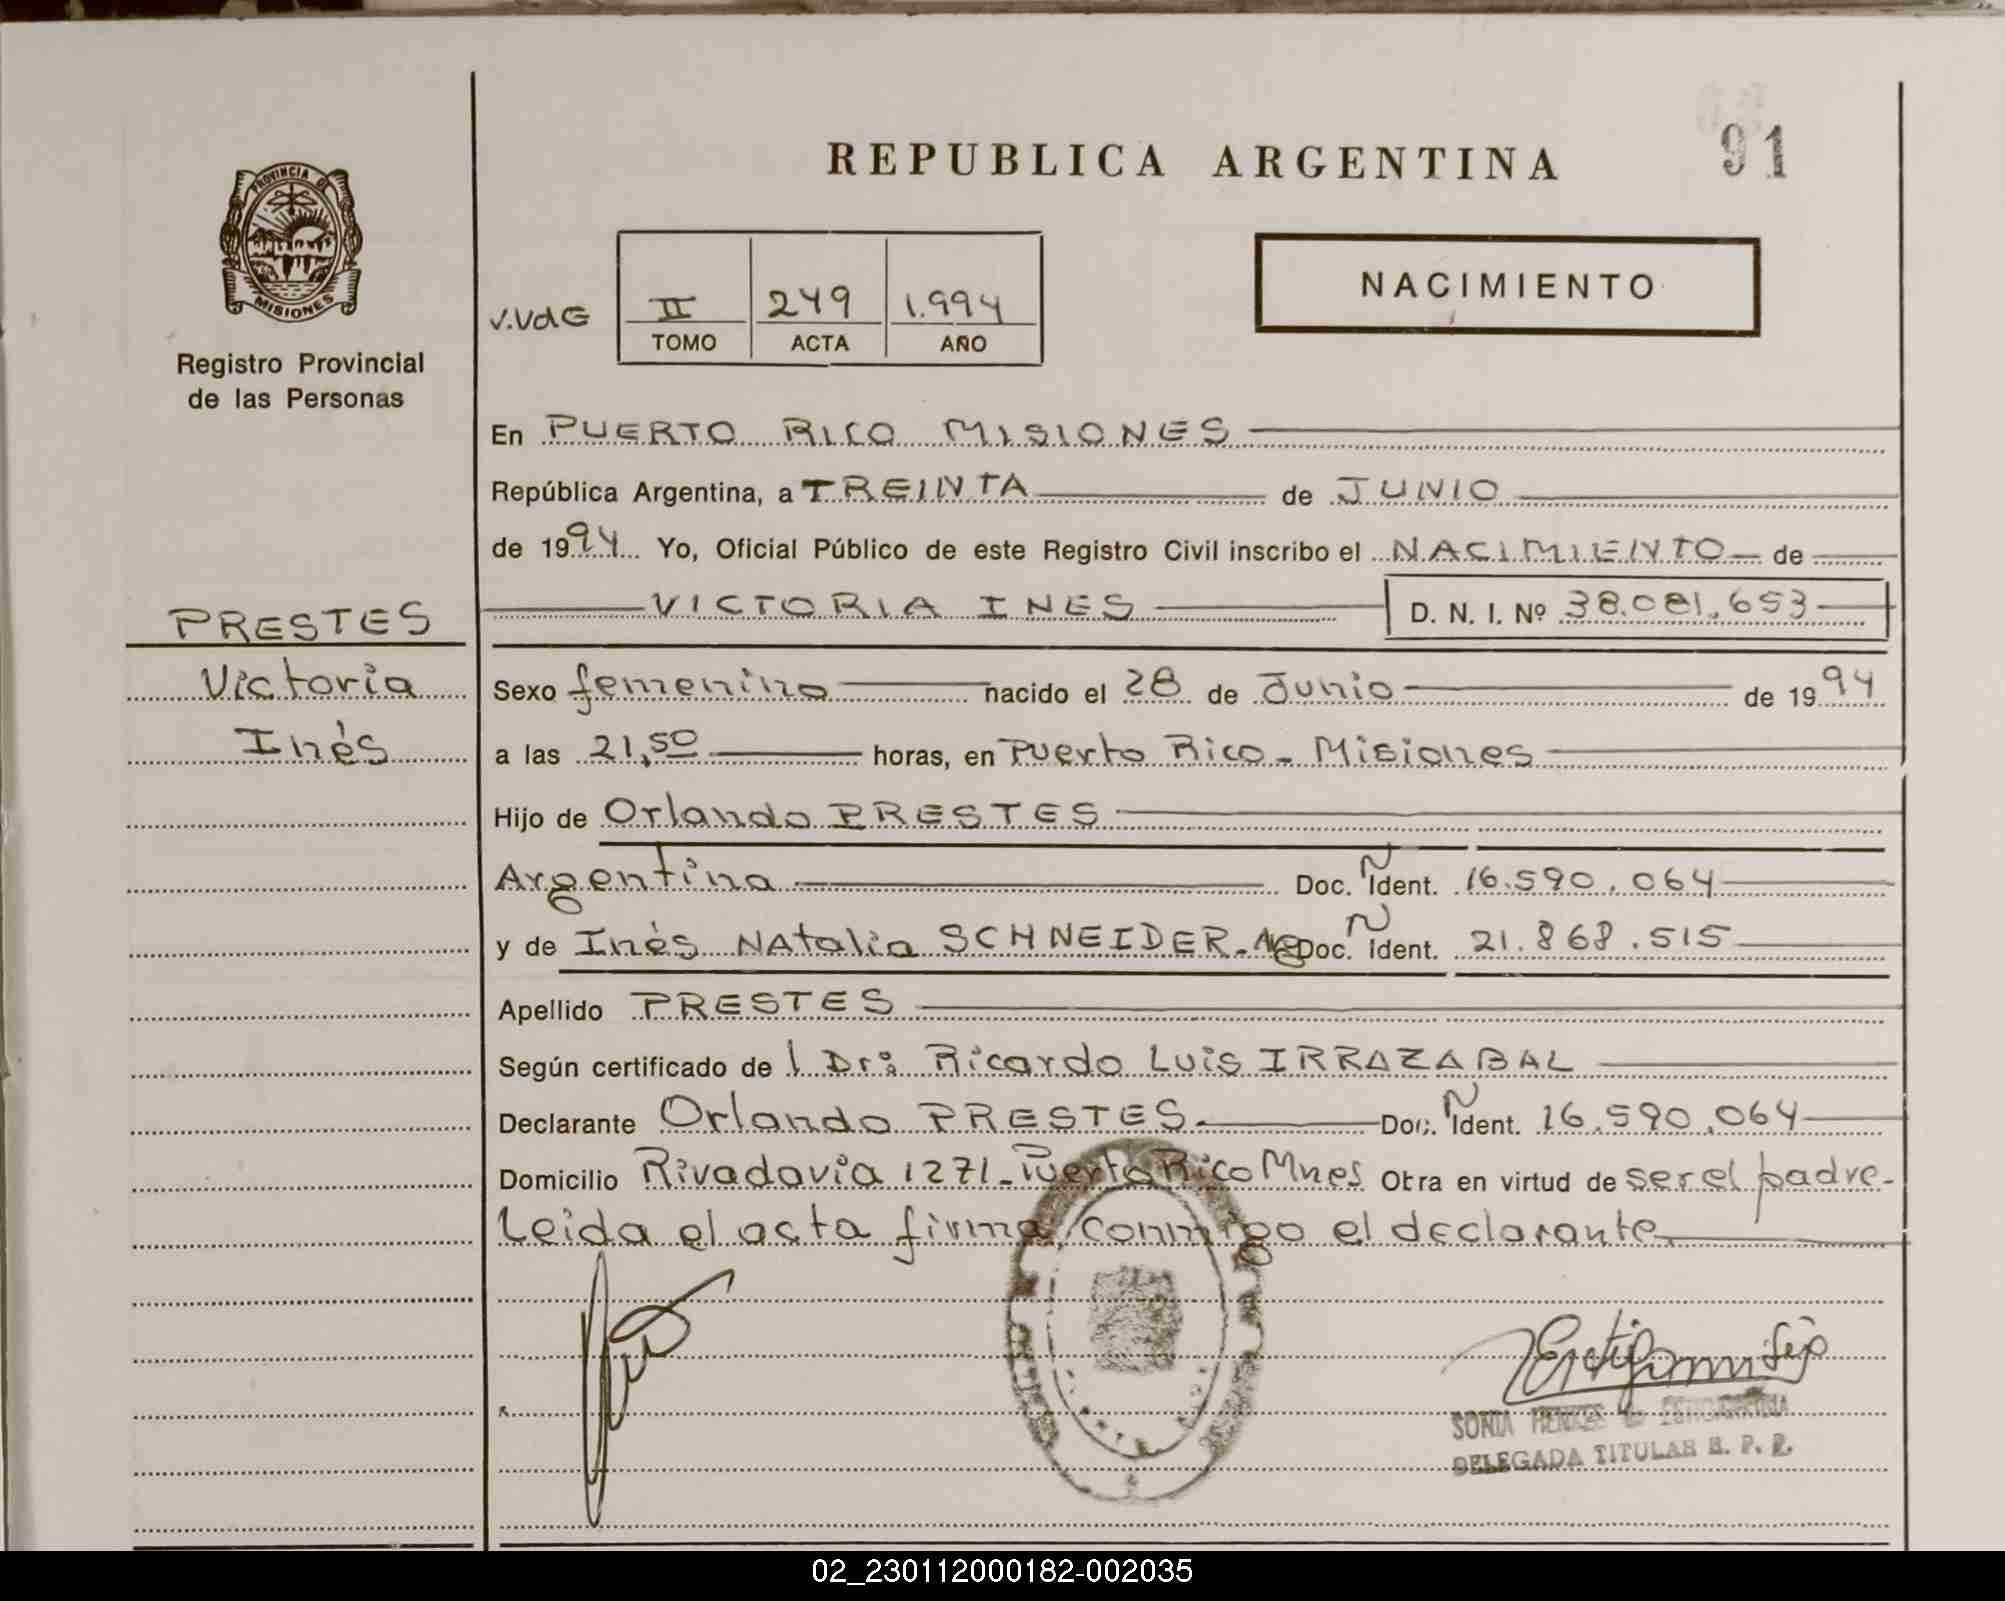 REPUBLICA ARGENTINA
91
PROVINCIA DE
MISIONES
Registro Provincial
de las Personas
V.VdG
II 249 1.994
TOMO ACTA AÑO
NACIMIENTO
En PUERTO RICO MISIONES
República Argentina, a TREINTA de JUNIO
de 1994 Yo, Oficial Público de este Registro Civil inscribo el NACIMIENTO de
VICTORIA INES D. N. I. Nº 38.081.653
PRESTES
Victoria
Inés
Sexo femenino nacido el 28 de Junio de 1994
a las 21,50 horas, en Puerto Rico - Misiones
Hijo de Orlando PRESTES
Argentina Doc. N Ident. 16.590.064
y de Inés NAtalia SCHNEIDER. Doc. N Ident. 21.868.515
Apellido PRESTES
Según certificado de l Dr: Ricardo Luis IRRAZABAL
Declarante Orlando PRESTES. Doc. N Ident. 16.590.064
Domicilio Rivadavia 1271 - Puerto Rico Mnes Obra en virtud de ser el padre -
Leida el acta firma, conmigo el declarante
SONIA HENKES de
DELEGADA TITULAR R. P. P.
02_230112000182-002035